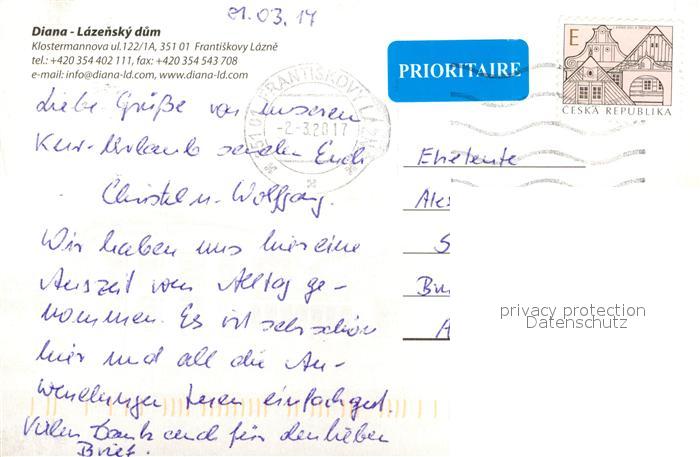 21.03.17
Diana - Lázeňský dům
Klostermannova ul.122/1A, 351 01 Františkovy Lázně
tel.: +420 354 402 111, fax: +420 354 543 708
e-mail: info@diana-ld.com, www.diana-ld.com
PRIORITAIRE
E
ČESKÁ REPUBLIKA
351 01 FRANTIŠKOVY LÁZNĚ
-2.-3.2017
Liebe Grüße von unserem
Kur-Urlaub senden Euch
Christel u. Wolfgang.
Wir haben uns hier eine
Auszeit vom Alltag ge-
nommen. Es ist sehr schön
hier und all die An-
wendungen tuen einfach gut.
Vielen Dank auch für den lieben
Brief.
Eheleute
Ale
S
B
A
privacy protection
Datenschutz